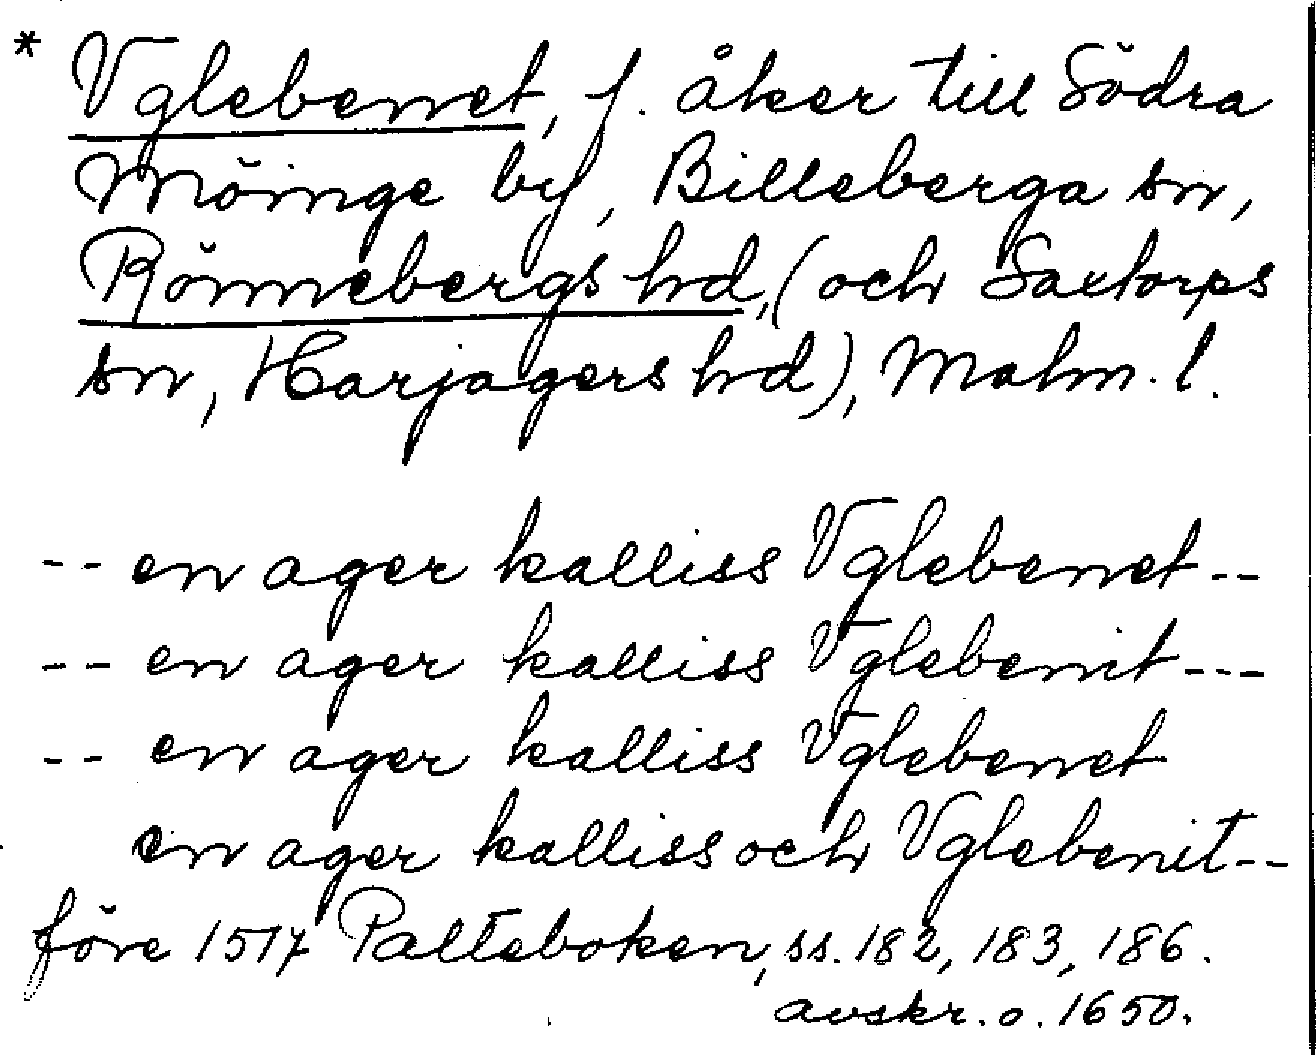 * Vglebenet, f. åker till Södra
Möinge by, Billeberga sn,
Rönnebergs hd, (och Saxtorps
sn, Harjagers hd), Malm. l.
-- en ager kalliss Vglebenet --
-- en ager kalliss Vglebenit ---
-- en ager kalliss Vglebenet
en ager kalliss och Vglebenit --
före 1517 Palteboken, ss. 182, 183, 186.
avskr. o. 1650.